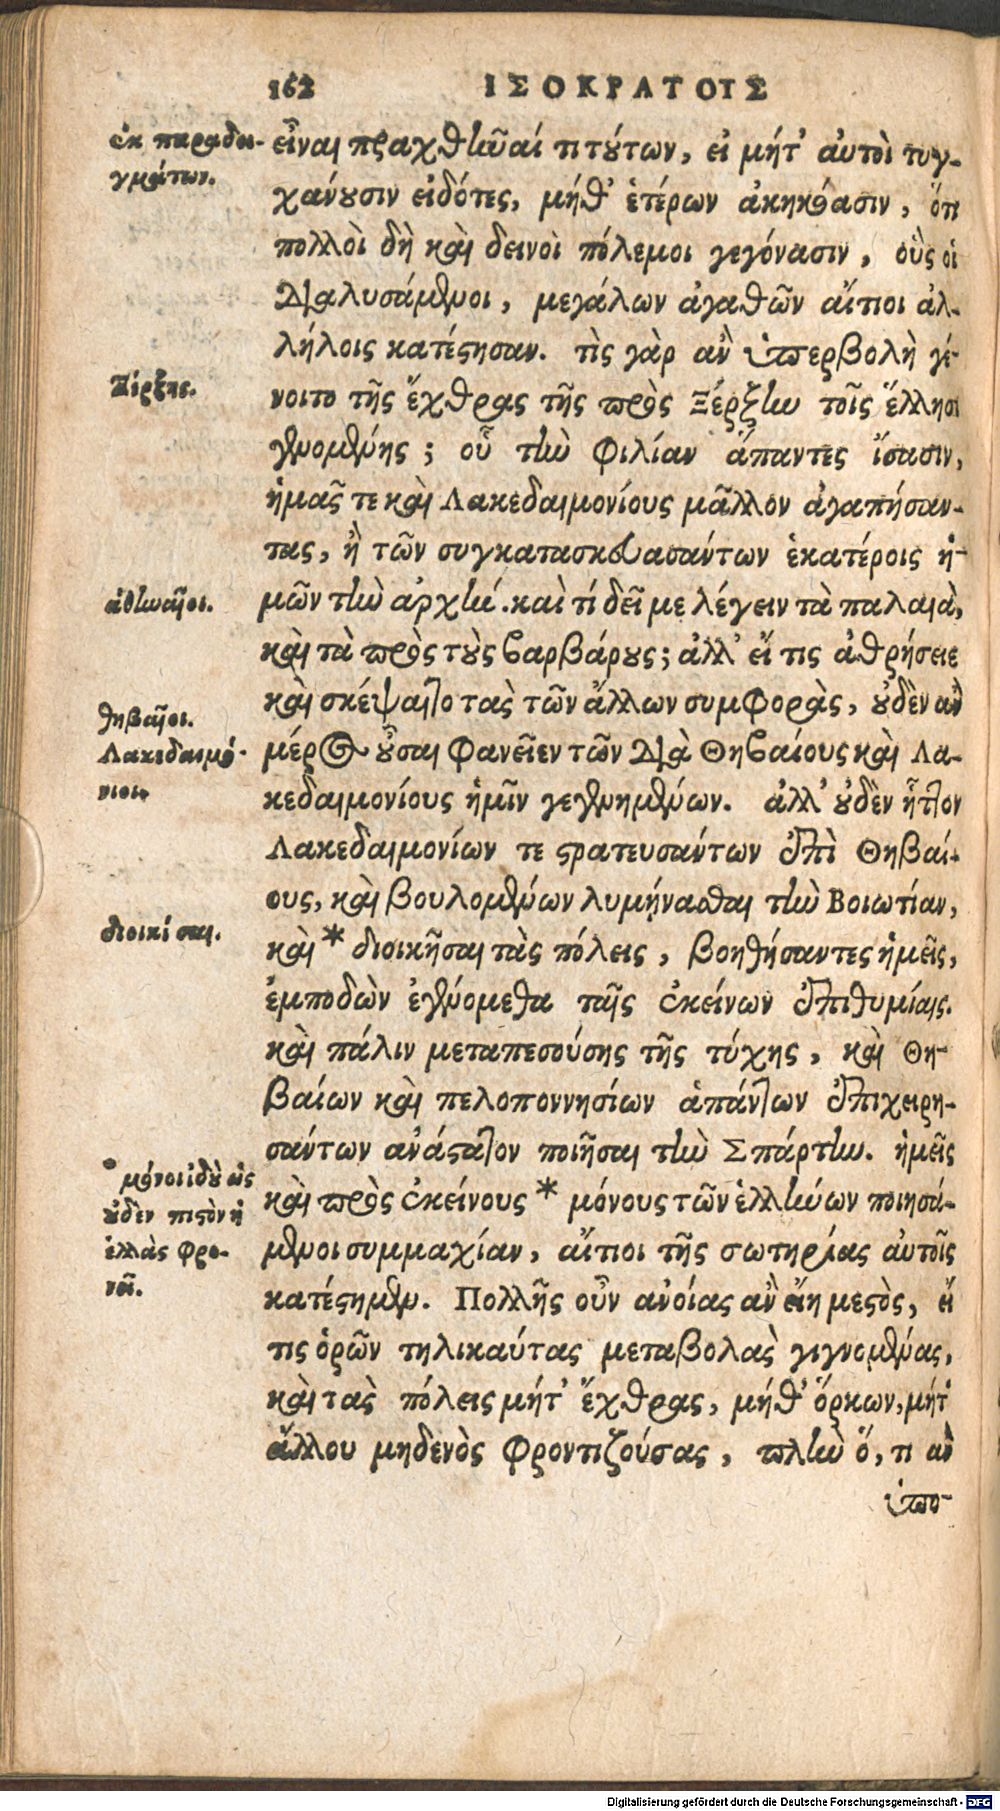 162 ΙΣΟΚΡΑΤΟΥΣ
ἐκ παραδει-
γμάτων.
εἶναι πραχθῆναί τι τούτων, εἰ μήτ' αὐτοὶ τυγ-
χάνουσιν εἰδότες, μήθ' ἑτέρων ἀκηκόασιν, ὅτι
πολλοὶ δὴ καὶ δεινοὶ πόλεμοι γεγόνασιν, οὓς οἱ
διαλυσάμενοι, μεγάλων ἀγαθῶν αἴτιοι ἀλ-
λήλοις κατέστησαν. τὶς γὰρ ἂν ὑπερβολὴ γέ-
Ξέρξης.
νοιτο τῆς ἔχθρας τῆς πρὸς Ξέρξην τοῖς ἕλλησι
γενομένης; οὗ τὴν φιλίαν ἅπαντες ἴσασιν,
ἡμᾶς τε καὶ Λακεδαιμονίους μᾶλλον ἀγαπήσαν-
τας, ἢ τῶν συγκατασκευασάντων ἑκατέροις ἡ-
ἀθηναῖοι.
μῶν τὴν ἀρχήν. καὶ τί δεῖ με λέγειν τὰ παλαιὰ,
καὶ τὰ πρὸς τοὺς βαρβάρους; ἀλλ' εἴ τις ἀθρήσειε
καὶ σκέψαιτο τὰς τῶν ἄλλων συμφορὰς, οὐδὲν ἂν
θηβαῖοι.
Λακεδαιμό-
νιοι.
μέρος οὖσαι φανεῖεν τῶν διὰ Θηβαίους καὶ Λα-
κεδαιμονίους ἡμῖν γεγενημένων. ἀλλ' οὐδὲν ἧττον
Λακεδαιμονίων τε στρατευσάντων ἐπὶ Θηβαί-
ους, καὶ βουλομένων λυμήνασθαι τὴν Βοιωτίαν,
διοικίσαι.
καὶ * διοικῆσαι τὰς πόλεις, βοηθήσαντες ἡμεῖς,
ἐμποδὼν ἐγενόμεθα ταῖς ἐκείνων ἐπιθυμίαις.
καὶ πάλιν μεταπεσούσης τῆς τύχης, καὶ Θη-
βαίων καὶ πελοποννησίων ἁπάντων ἐπιχειρη-
σάντων ἀνάστατον ποιῆσαι τὴν Σπάρτην. ἡμεῖς
μόνοι ἰδοὺ ὡς
οὐδὲν πιστὸν ἡ
ἑλλὰς φρο-
νεῖ.
καὶ πρὸς ἐκείνους * μόνους τῶν ἑλλήνων ποιησά-
μενοι συμμαχίαν, αἴτιοι τῆς σωτηρίας αὐτοῖς
κατέστημεν. Πολλῆς οὖν ἀνοίας ἂν εἴη μεστὸς, εἴ
τις ὁρῶν τηλικαύτας μεταβολὰς γιγνομένας,
καὶ τὰς πόλεις μήτ' ἔχθρας, μήθ' ὅρκων, μήτ'
ἄλλου μηδενὸς φροντιζούσας, πλὴν ὅ, τι ἂν
ὑπο-
Digitalisierung gefördert durch die Deutsche Forschungsgemeinschaft - DFG